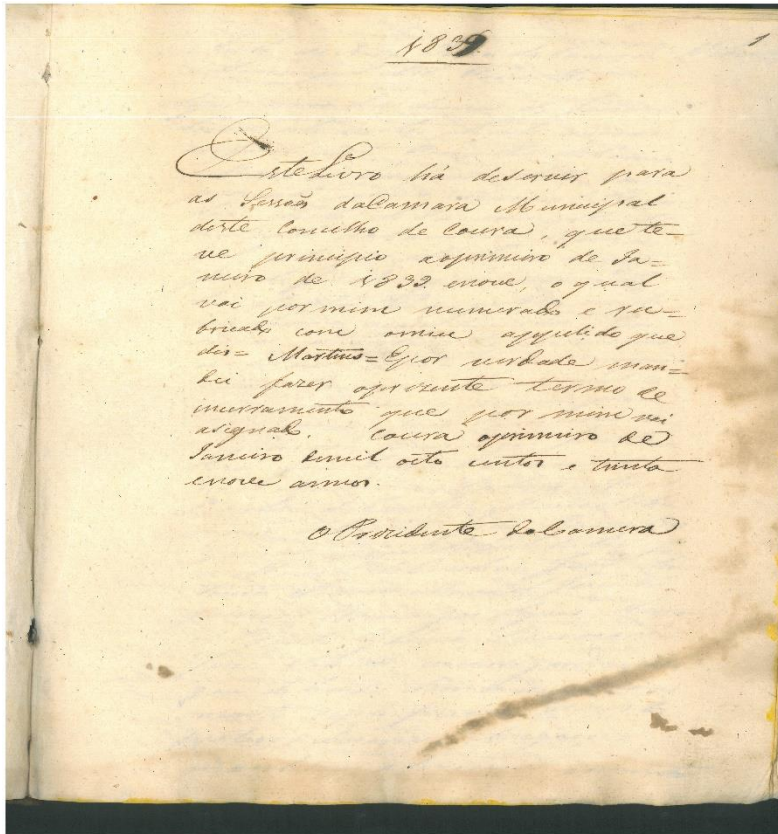 1839
1
Este Livro há deservir para
as Sessoẽs daCamara Municipal
deste Concelho de Coura, que te=
ve principio aoprimeiro de Ja=
neiro de 1839 enove, o qual
vai pormim numerado e ru=
bricado com omeu appelido que
diz= Martins= Epor verdade man=
dei fazer oprezente termo de
incerramento que por mim vai
asignado. Coura oprimeiro de
Janeiro demil oito centos e trinta
enove annos.
O Prezidente daCamera